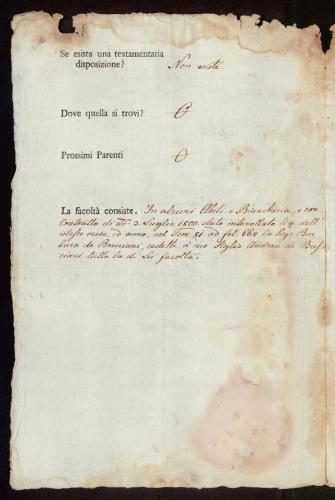 Se esista una testamentaria
disposizione? Non esiste
Dove quella si trovi?
Prossimi Parenti
La facoltà consiste. In alcuni Abiti e Biancheria, e con
Contratto di 3. Luglio 1800. stato intavolato li 9 dell'
istesso mese, ed anno, nel Tom. 81. ad fol. 664 la Sigra Bar
bara de cedette à suo Figlio Andrea de
tutta la di Lei facoltà.